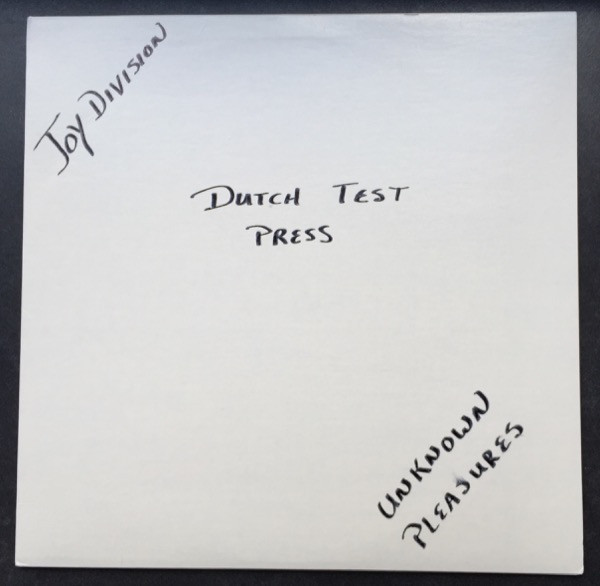 Joy Division
Dutch Test
Press
Unknown
Pleasures